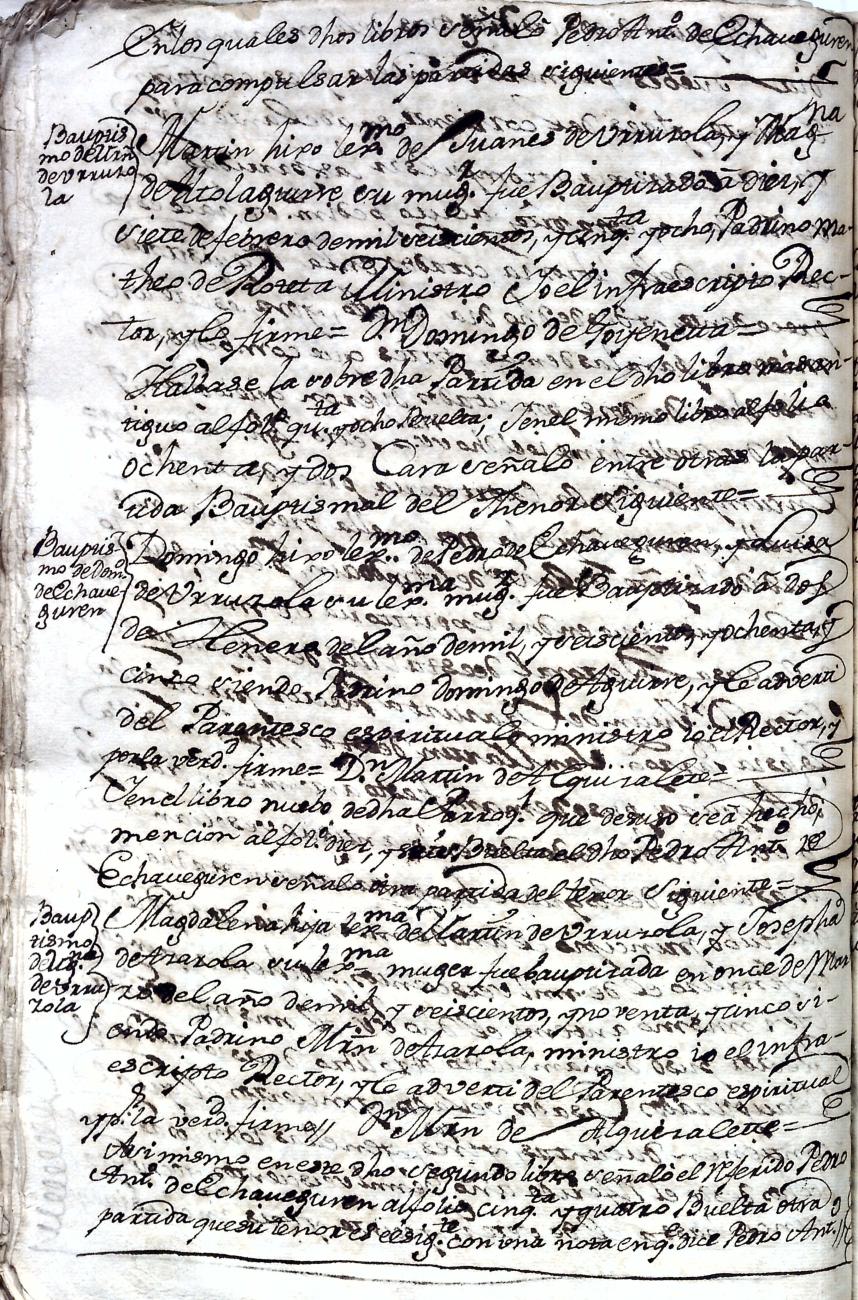 En los quales dhos libros señaló Pedro Ant.º de Echaveguren
para compulsar las partidas siguientes=
Baupris
mo de Mrñ
de Urruzo
la
Martin hixo lex.mo de Juanes de Urruzola, y Mag.na
de Altolaguirre su mug.r fue Baupticado â diez, y
siete de febrero de mil seiscientos, y cinq.ta y ocho, Padrino Ma-
theo de Roteta Ministro Yo el infraescripto Rec-
tor, y lo firme= D.n Domingo de Goyenetta=
Hallase la sobre dha Partida en el dho libro mas an-
tiguo al fol.º qu.ta y ocho Buelta; Y en el mismo libro al folio
ochenta, y dos Cara señaló entre otras la par-
tida Bauptismal del Thenor siguiente=
Baupris
mo de Dom.º
de Echave
guren
Domingo hixo lex.mo de Pedro de Echaveguren, y Luisa
de Urruzola su lex.ma mug.r fue Bauptizado â dos
de Henero del año de mil, y seiscientos, y ochenta, y
cinco siendo Padrino Domingo de Aguirre, y le adverti
del Parentesco espiritual ministro io el Rector, y
por la verd.d firme= D.n Martin de Alquizalete=
Y en el libro nuebo de dha Parroq.l que de suso se a hecho
mencion al fol.º diez, y Buelta el dho Pedro Ant.º de
Echaveguren señalo otra partida del tenor siguiente=
Baup
tismo
de Mag.na
de Urru
zola
Magdalena hija lex.ma de Martin de Urruzola, y Josepha
de Arарola su lex.ma muger fue bauptizada en once de Mar
zo del año de mil, y seiscientos, y noventa, y cinco si-
endo Padrino Mrñ de Azarola, ministro io el infra-
escripto Rector, y le adverti del Parentesco espiritual
y p.r la verd.d firme// D.n Mrn de Alquizalete=
Asi mismo en este dho segundo libro señaló el referido Pedro
Ant.º de Echaveguren al folio cinq.ta y quatro Buelta otra
partida que su tenor es el sig.te con una nota en q.e dice Pedro Ant.º